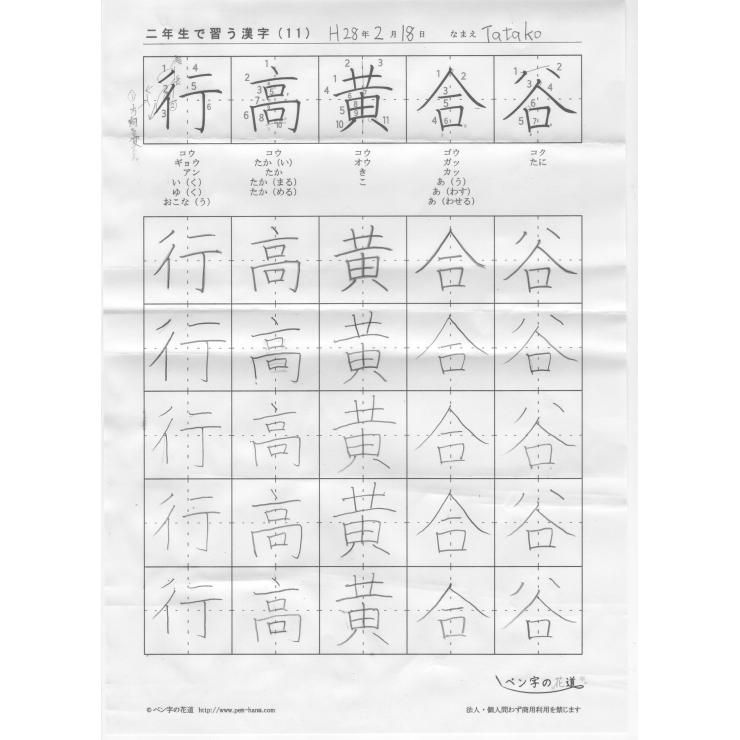 二年生で習う漢字（11） H28年2月18日 なまえ Tatako
行 高 黄 合 谷
コウ コウ コウ ゴウ コク
ギョウ たか（い） オウ ガッ たに
アン たか き カッ
い（く） たか（まる） こ あ（う）
ゆ（く） たか（める） あ（わす）
おこな（う） あ（わせる）
行 高 黄 合 谷
行 高 黄 合 谷
行 高 黄 合 谷
行 高 黄 合 谷
行 高 黄 合 谷
ペン字の花道
©ペン字の花道 http://www.pen-hana.com 法人・個人問わず商用利用を禁じます